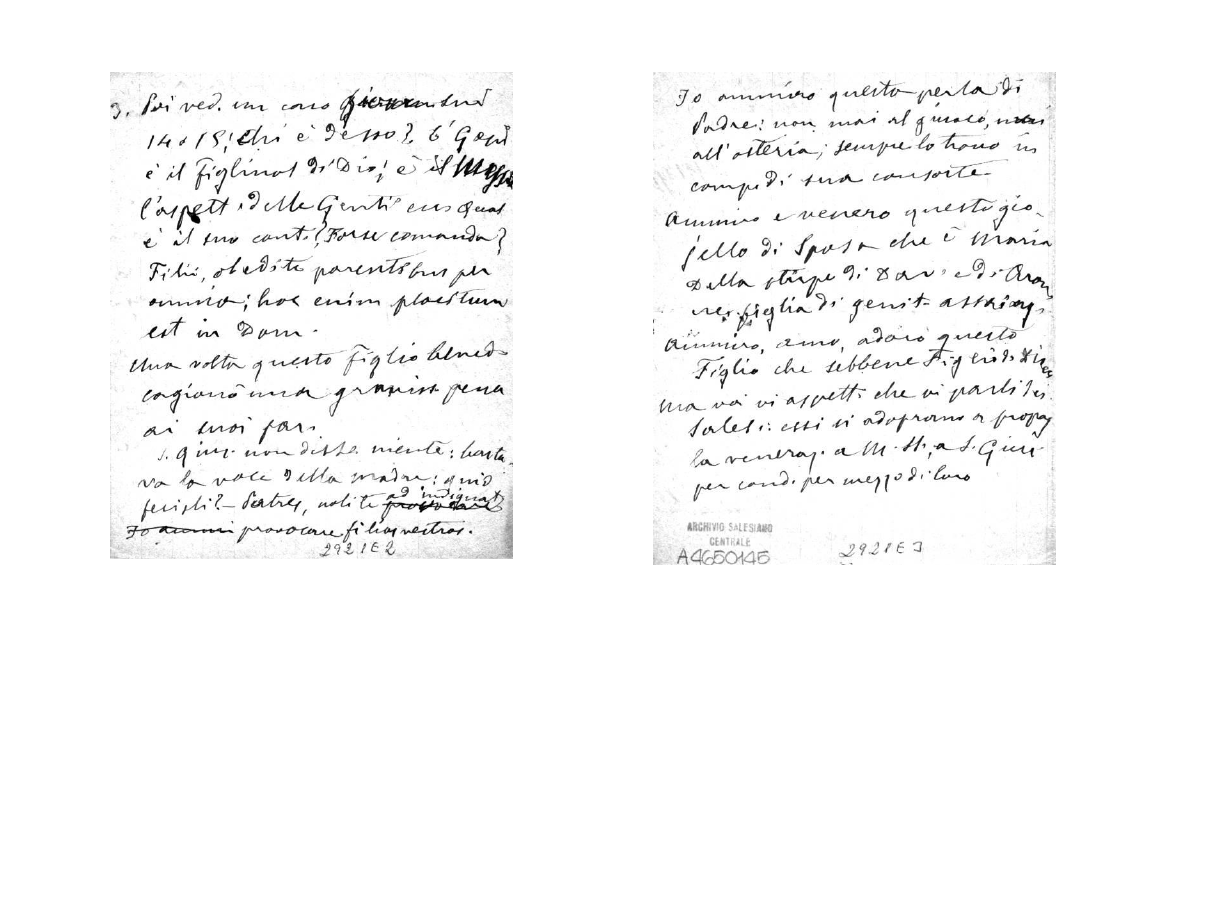 3. Poi ved. un caro
14 o 15; chi è desso? È Gesù
è il figliuol di Dio; è il Messia
l'aspett. delle Genti eius Qual
è il suo cont.? Forse comanda?
Filii, obedite parentibus per
omnia; hoc enim placitum
est in Dom.
Una volta questo figlio bened.
cagionò una graviss pena
ai suoi par.
S. Gius. non disse niente: basta-
va la voce della madre: quid
fecisti? – Patres, nolite ad indignat
provocare filios vestros.
2921E2
Io ammiro questa perla di
Padre: non mai al giuoco, mai
all'osteria; sempre lo trovo in
comp. di sua consorte
Ammiro e venero questo gio-
jello di Sposa che è Maria
Della stirpe di Dav. e di Aron
figlia di genit.
Ammiro, amo, adoro questo
Figlio che sebbene Figlio di Dio
Ma voi vi aspett. che vi parli dei
Sales.: essi si adoprano a propag
la veneraz. a M. SS., a S. Gius.
per cond. per mezzo di loro
ARCHIVIO SALESIANO
CENTRALE
A4650145
2921E3